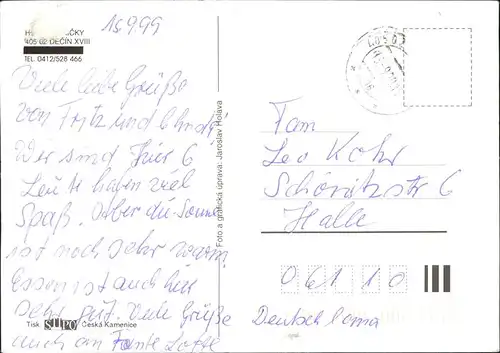 15.9.99
405 02 DĚČÍN XVIII
TEL. 0412/528 466
Viele liebe Grüße
von Fritz und
Wir sind hier 6
Leute haben viel
Spaß. Aber die Sonne
ist noch sehr warm
Essen ist auch hier
sehr gut. Viele Grüße
auch an Tante Lotte
Tisk STUPO Česká Kamenice
Foto a grafická úprava: Jaroslav Holava
Fam
Leo Kohr
Schöritzstr 6
Halle
06110
Deutschland